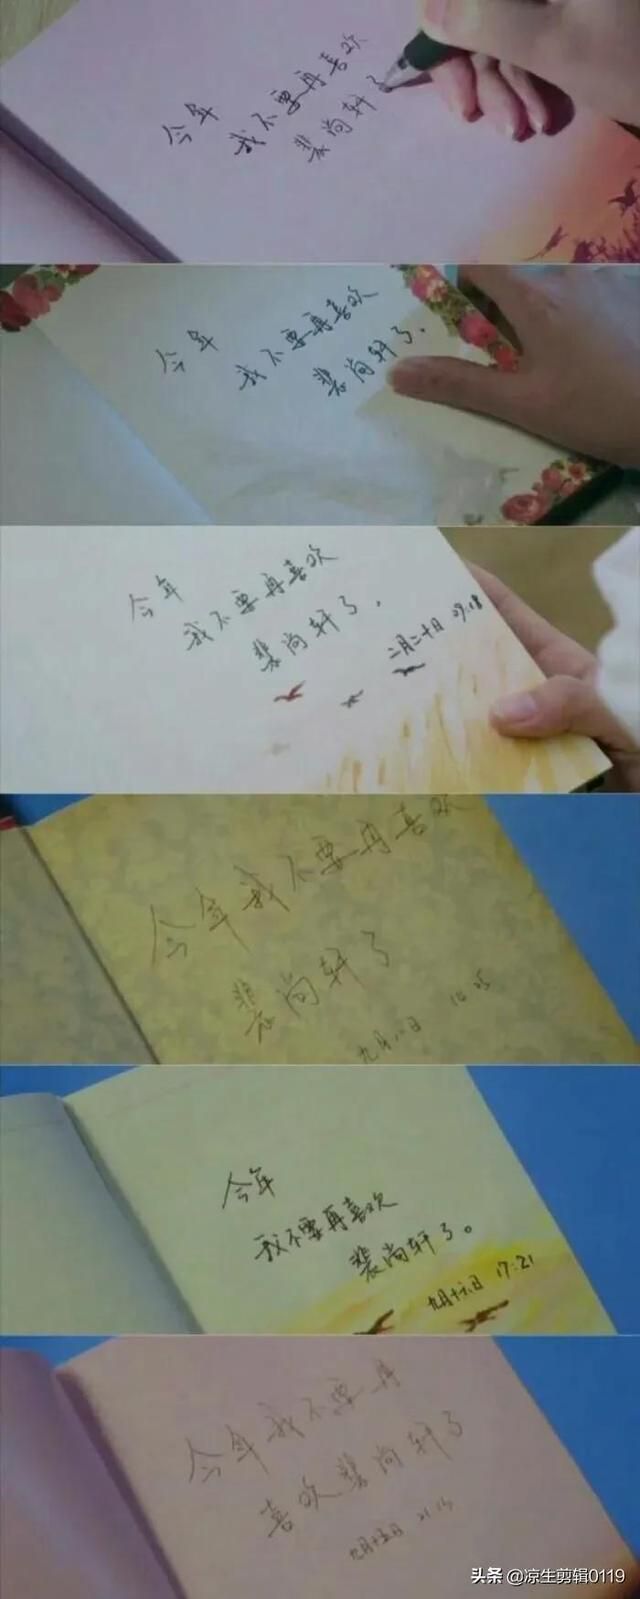 今年
我不要再喜欢
裴尚轩了
今年
我不要再喜欢
裴尚轩了.
今年
我不要再喜欢
裴尚轩了。
二月二十日 09:18
今年我不要再喜欢
裴尚轩了
九月八日 16:05
今年
我不要再喜欢
裴尚轩了。
九月十六日 17:21
今年我不要再
喜欢裴尚轩了
九月十五日 21:15
头条 @凉生剪辑0119